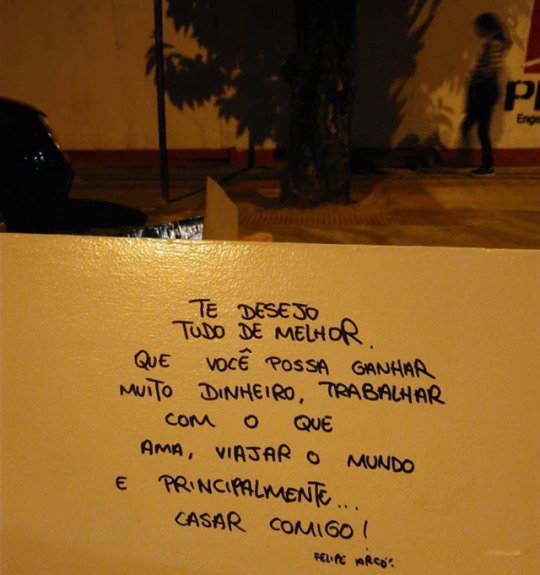 Enge
TE DESEJO
TUDO DE MELHOR.
QUE VOCÊ POSSA GANHAR
MUITO DINHEIRO, TRABALHAR
COM O QUE
AMA, VIAJAR O MUNDO
E PRINCIPALMENTE...
CASAR COMIGO!
FELIPE